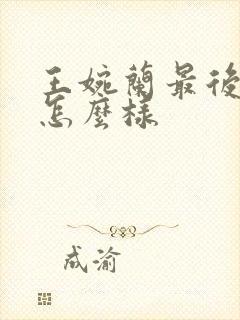 王婉蘭最後
怎麼樣
成渝